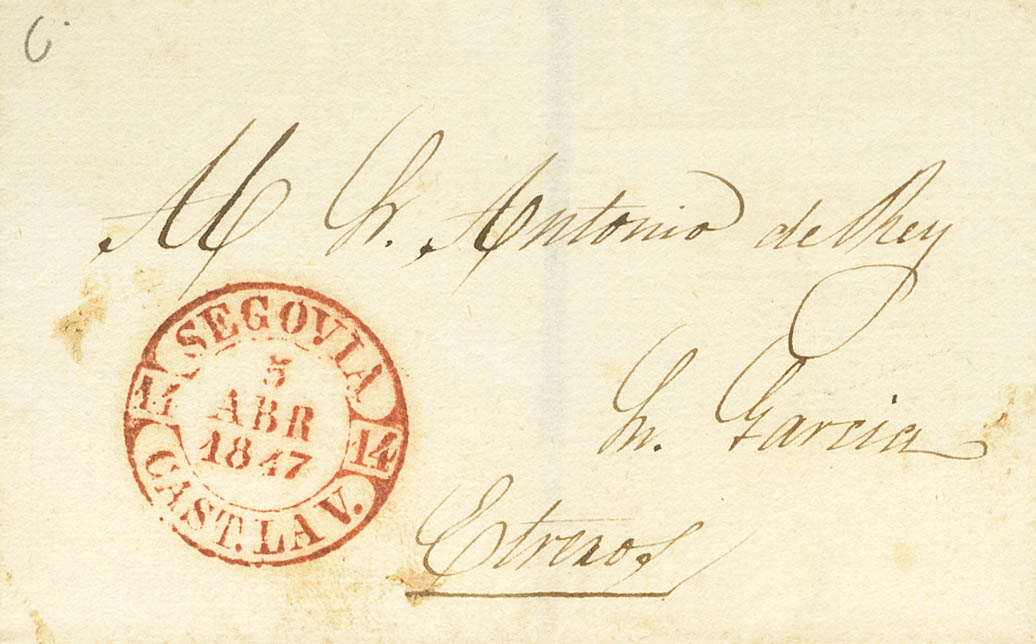 Al Sr. Antonio del Rey
Sn. Garcia
Etreros
SEGOVIA
5
ABR
1847
14 14
CAST. LA V.